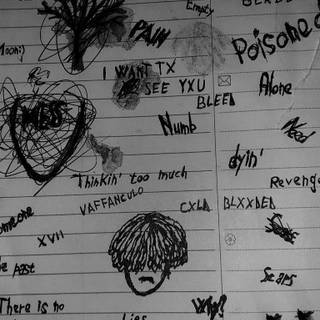 Empty
PAIN
Poisoned
I WANT TX
SEE YXU
BLEED
Alone
MESS
Numb
Need
dyin'
Thinkin' too much
Revenge
VAFFANCULO
CXLD
BLXXDED
XVII
Scars
past
There is no
Why?
Lies